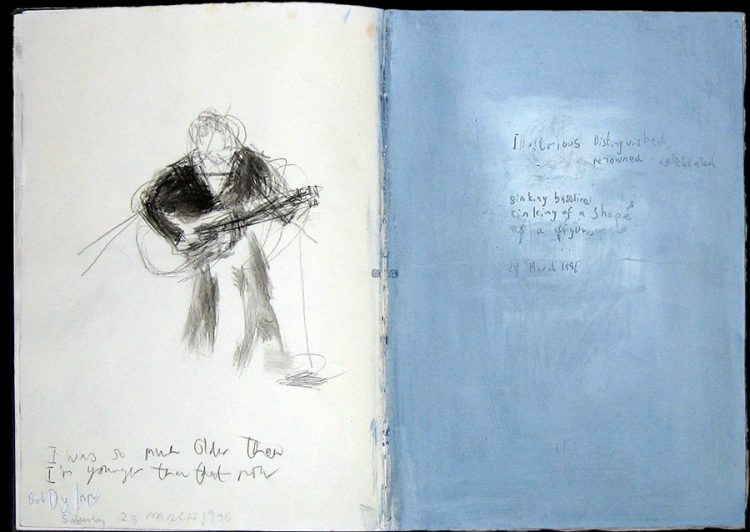 I was so much Older then
I'm younger than that now
Bob Dylan
Saturday 23 MARCH/1996
Illustrious Distinguished,
renowned celebrated
sinking baseline
sinking of a shape
of a figure
March 1996